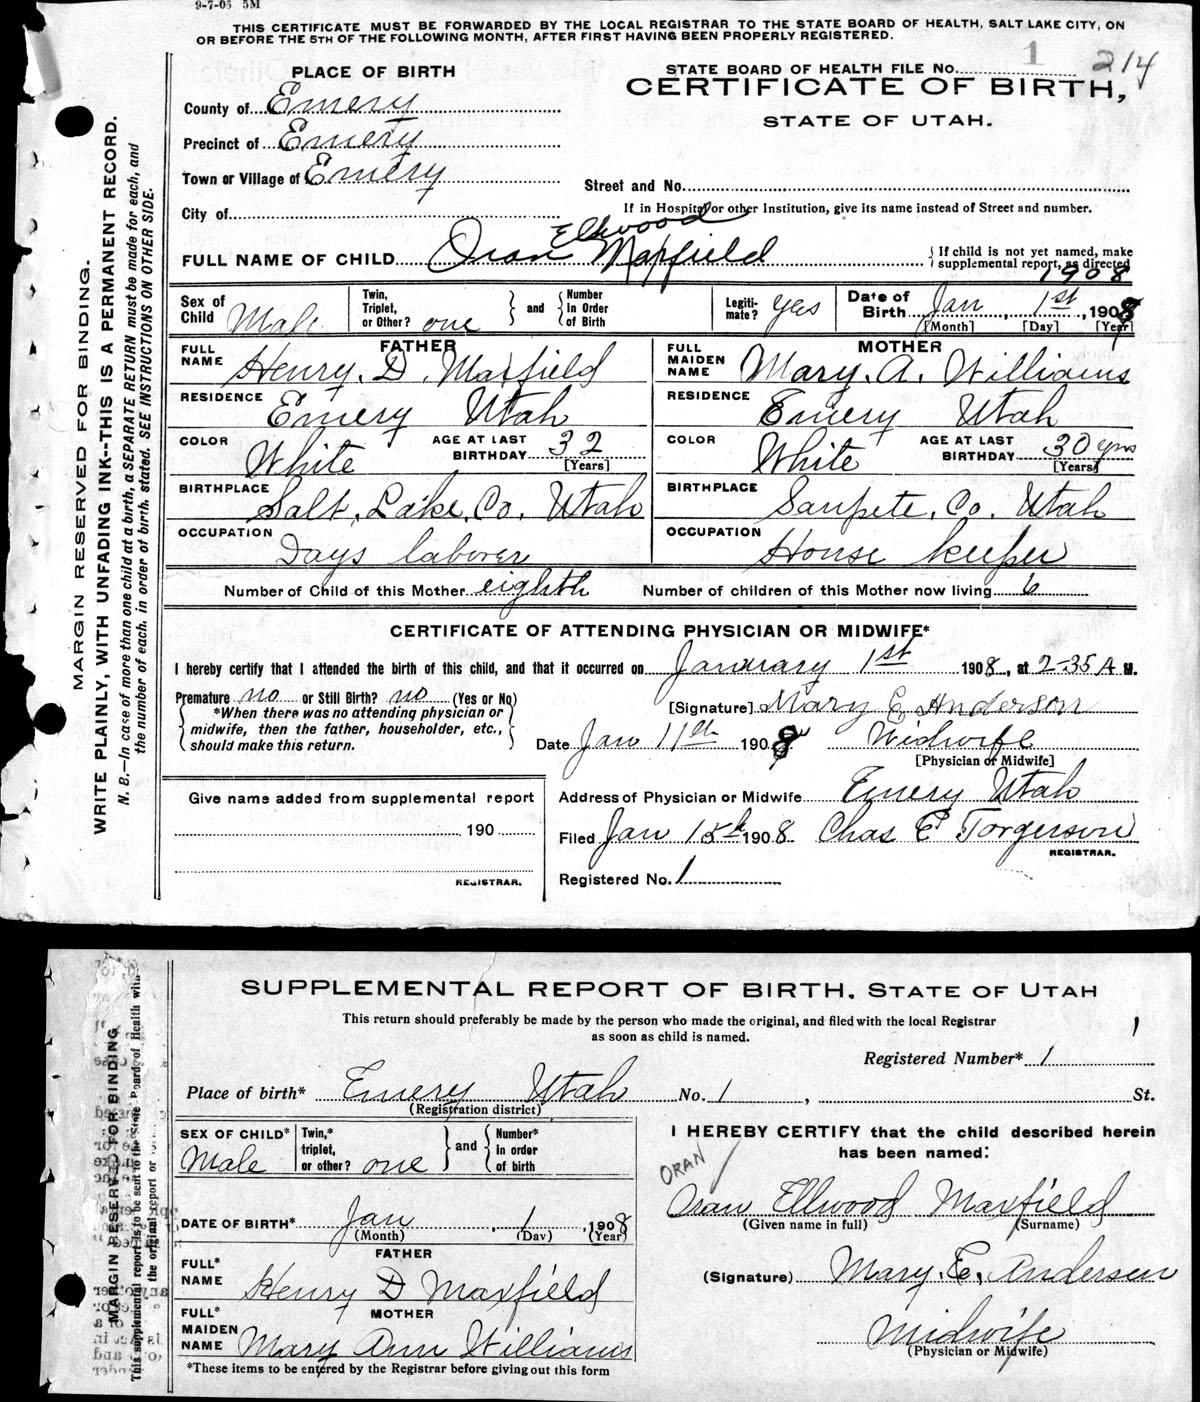 9-7-03 5M
THIS CERTIFICATE MUST BE FORWARDED BY THE LOCAL REGISTRAR TO THE STATE BOARD OF HEALTH, SALT LAKE CITY, ON
OR BEFORE THE 5TH OF THE FOLLOWING MONTH, AFTER FIRST HAVING BEEN PROPERLY REGISTERED.
MARGIN RESERVED FOR BINDING.
WRITE PLAINLY, WITH UNFADING INK--THIS IS A PERMANENT RECORD.
N. B.—In case of more than one child at a birth, a SEPARATE RETURN must be made for each, and
the number of each, in order of birth, stated. SEE INSTRUCTIONS ON OTHER SIDE.
PLACE OF BIRTH
STATE BOARD OF HEALTH FILE NO. 1 214
CERTIFICATE OF BIRTH,
STATE OF UTAH.
County of Emery
Precinct of Emery
Town or Village of Emery
Street and No.
City of
If in Hospital or other Institution, give its name instead of Street and number.
Ellwood
FULL NAME OF CHILD Oran Maxfield
If child is not yet named, make
supplemental report, as directed
1908
Sex of Child Male
Twin, Triplet, or Other? one
and
Number in Order of Birth
Legitimate? yes
Date of Birth Jan 1st, 1908
[Month] [Day] [Year]
FATHER
FULL NAME Henry. D. Maxfield
MOTHER
FULL MAIDEN NAME Mary. A. Williams
RESIDENCE Emery Utah
RESIDENCE Emery Utah
COLOR White AGE AT LAST BIRTHDAY 32 [Years]
COLOR White AGE AT LAST BIRTHDAY 30 yrs [Years]
BIRTHPLACE Salt. Lake. Co. Utah
BIRTHPLACE Sanpete. Co. Utah
OCCUPATION Days laborer
OCCUPATION House keeper
Number of Child of this Mother eighth Number of children of this Mother now living 6
CERTIFICATE OF ATTENDING PHYSICIAN OR MIDWIFE*
I hereby certify that I attended the birth of this child, and that it occurred on January 1st 1908, at 2-35 A M.
Premature no or Still Birth? no (Yes or No)
*When there was no attending physician or
midwife, then the father, householder, etc.,
should make this return.
[Signature] Mary E Anderson
Date Jan 11th 1908 Midwife
[Physician or Midwife]
Give name added from supplemental report
190
REGISTRAR.
Address of Physician or Midwife Emery Utah
Filed Jan 15th 1908 Chas E Torgerson
REGISTRAR.
Registered No. 1
MARGIN RESERVED FOR BINDING
This supplemental report is to be sent to the State Board of Health with
the original report or
SUPPLEMENTAL REPORT OF BIRTH. STATE OF UTAH
This return should preferably be made by the person who made the original, and filed with the local Registrar
as soon as child is named.
1
Registered Number* 1
Place of birth* Emery Utah No. 1, St.
(Registration district)
SEX OF CHILD* Male
Twin,* triplet, or other? one
and
Number* in order of birth
I HEREBY CERTIFY that the child described herein
has been named:
ORAN
Oran Ellwood Maxfield
(Given name in full) (Surname)
DATE OF BIRTH* Jan, 1, 1908
(Month) (Day) (Year)
FATHER
FULL* NAME Henry D Maxfield
(Signature) Mary. E. Andersen
Midwife
(Physician or Midwife)
MOTHER
FULL* MAIDEN NAME Mary Ann Williams
*These items to be entered by the Registrar before giving out this form